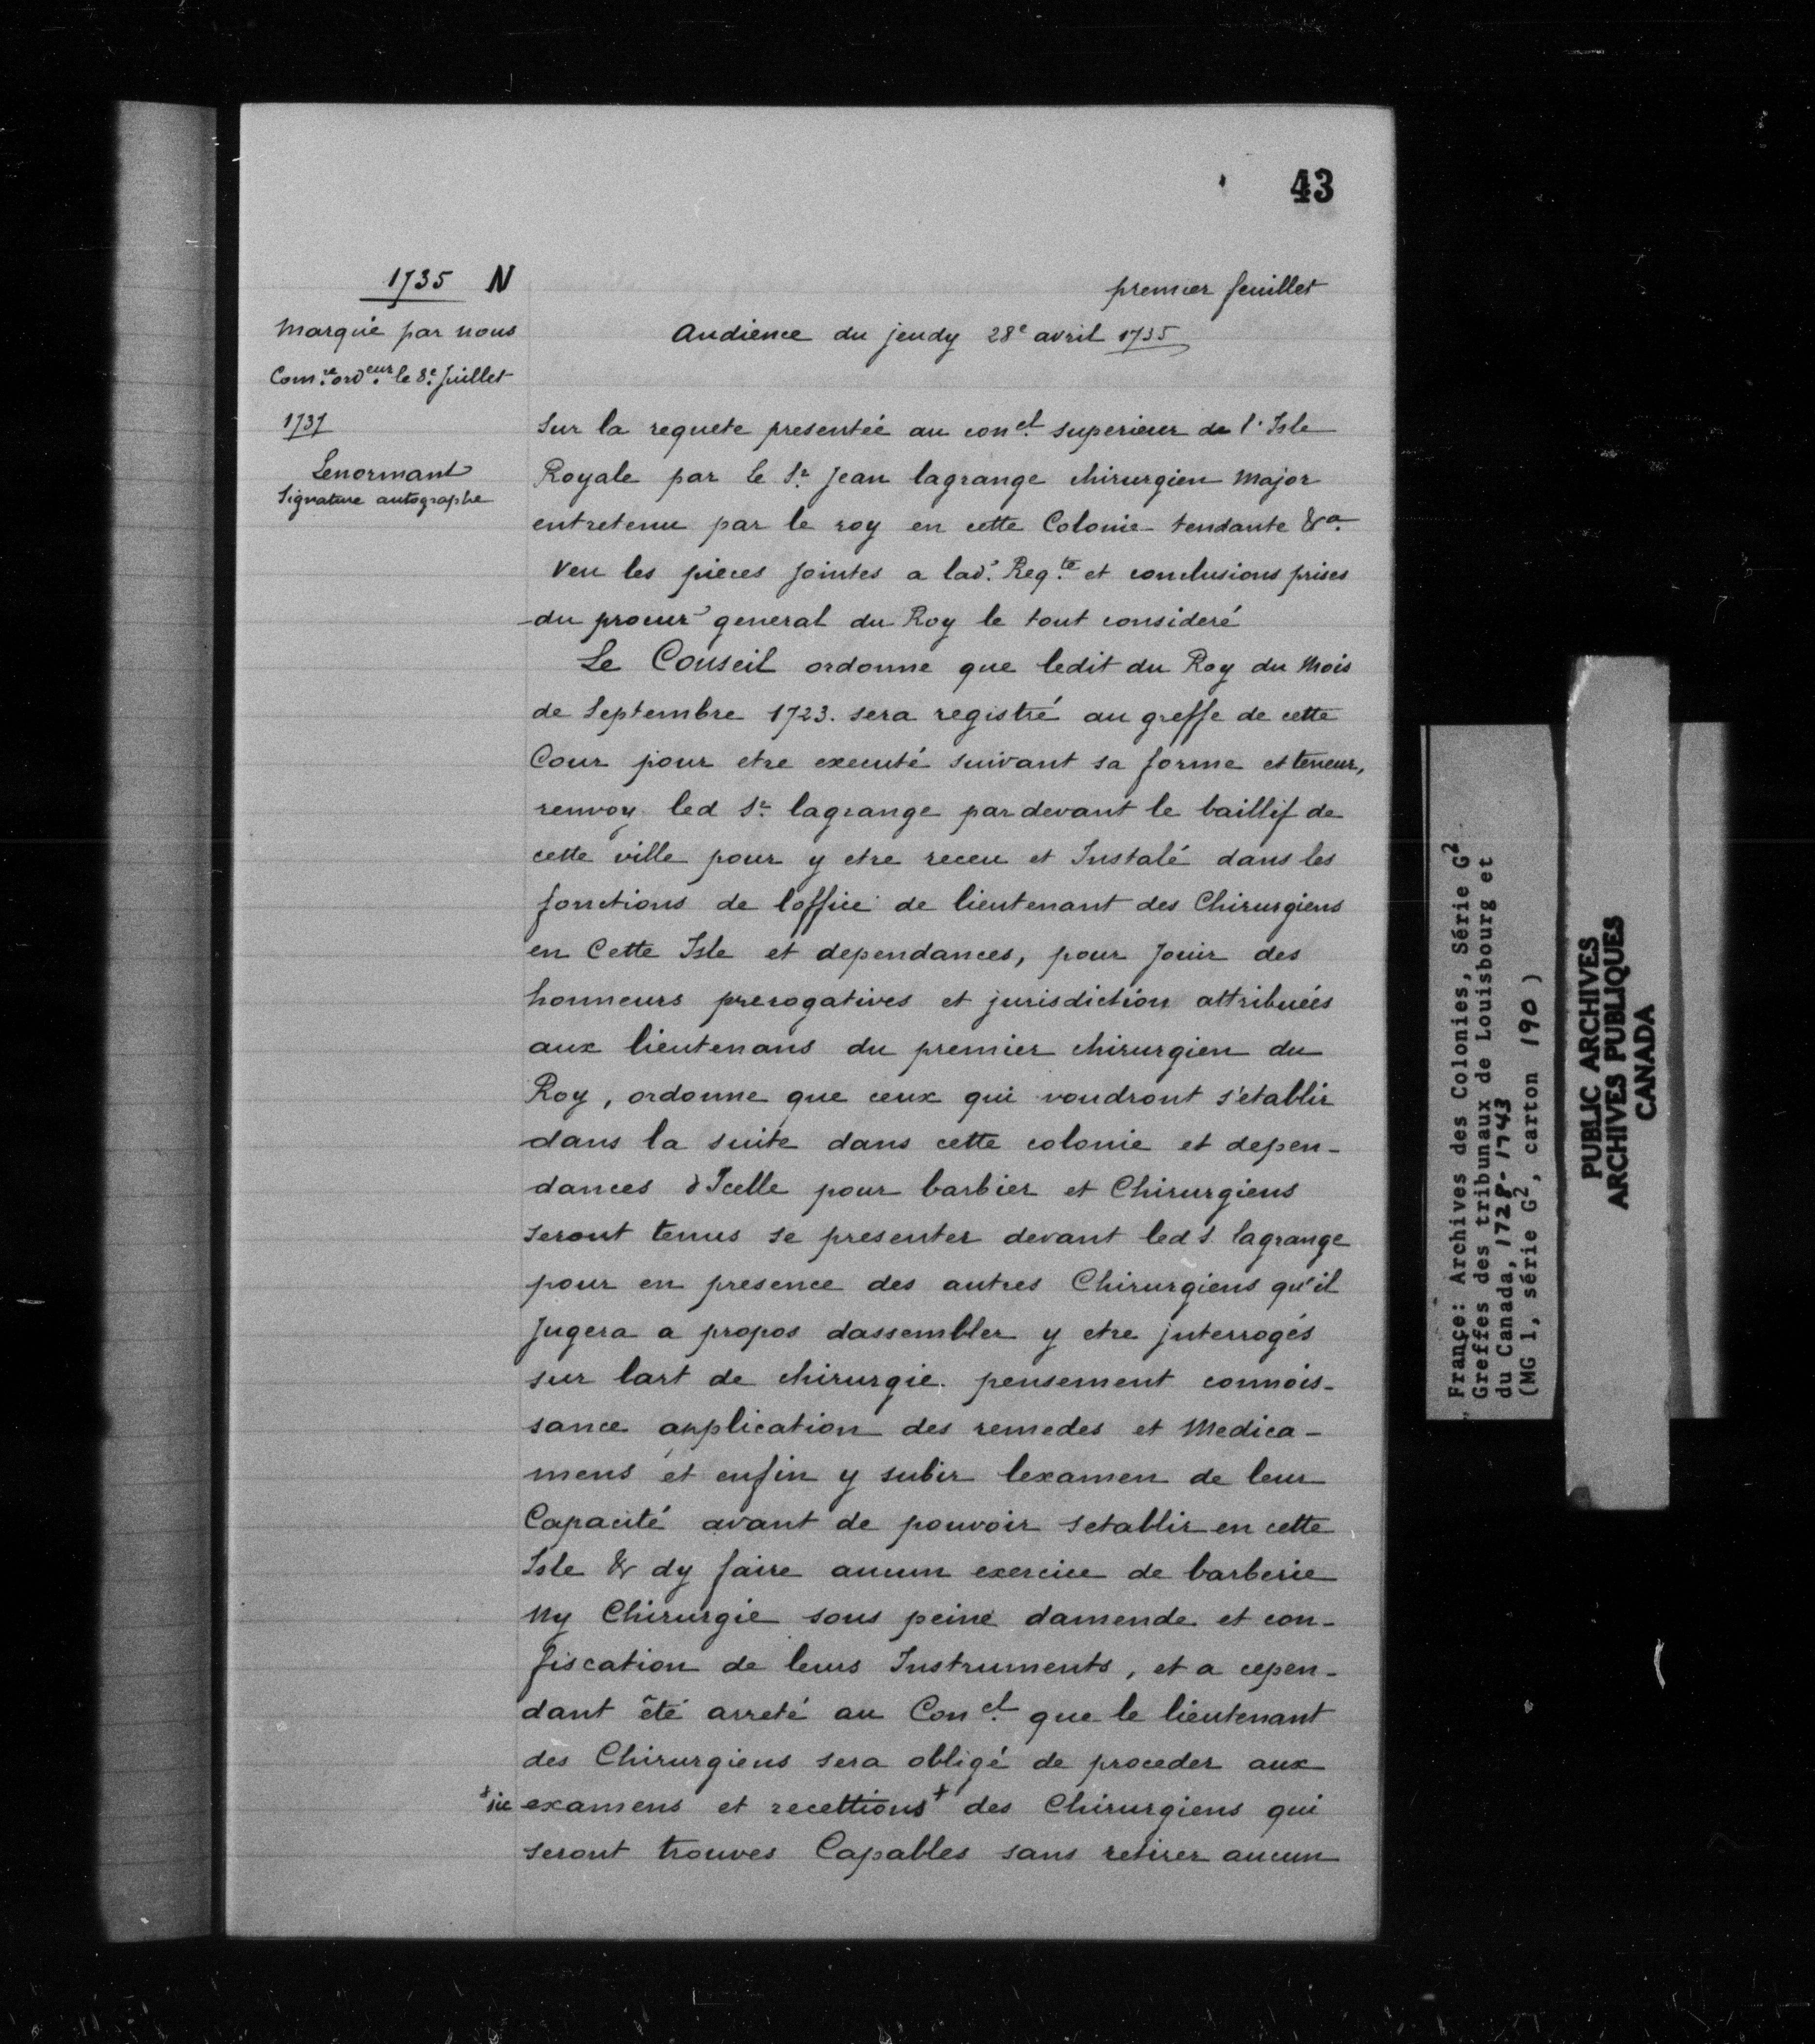 43
1735 N
Marqué par nous
Com.re ord.eur le 8.e Juillet
1737
Lenormant
Signature autographe
premier feuillet
Audience du jeudy 28e avril 1735
Sur la requete presentée au con.el superieur de l'Isle
Royale par le Sr Jean lagrange chirurgien Major
entretenu par le roy en cette Colonie tendante &a.
Veu les pieces jointes a lad. Req.te et conclusions prises
du procur general du Roy le tout consideré
Le Conseil ordonne que ledit du Roy du Mois
de Septembre 1723. sera registré au greffe de cette
Cour pour etre executé suivant sa forme et teneur,
renvoy led Sr lagrange pardevant le baillif de
cette ville pour y etre receu et Instalé dans les
fonctions de loffice de lieutenant des Chirurgiens
en Cette Isle et dependances, pour Jouir des
honneurs prerogatives et jurisdiction attribuées
aux lieutenans du premier chirurgien du
Roy, ordonne que ceux qui voudront s'établir
dans la suite dans cette colonie et depen-
dances d'Icelle pour barbier et Chirurgiens
seront tenus se presenter devant led s lagrange
pour en presence des autres Chirurgiens qu'il
Jugera a propos dassembler y etre jnterrogés
sur lart de chirurgie. pensement connois-
sance application des remedes et Medica-
mens et enfin y subir lexamen de leur
Capacité avant de pouvoir setablir en cette
Isle & dy faire aucun exercice de barberie
Ny Chirurgie sous peine damende et con-
fiscation de leurs Instruments, et a cepen-
dant êté arreté au Con.el que le lieutenant
des Chirurgiens sera obligé de proceder aux
+sic examens et recettions+ des Chirurgiens qui
seront trouves Capables sans retirer aucun
France: Archives des Colonies, Série G2
Greffes des tribunaux de Louisbourg et
du Canada, 1728-1743
(MG 1, série G2, carton 190)
PUBLIC ARCHIVES
ARCHIVES PUBLIQUES
CANADA